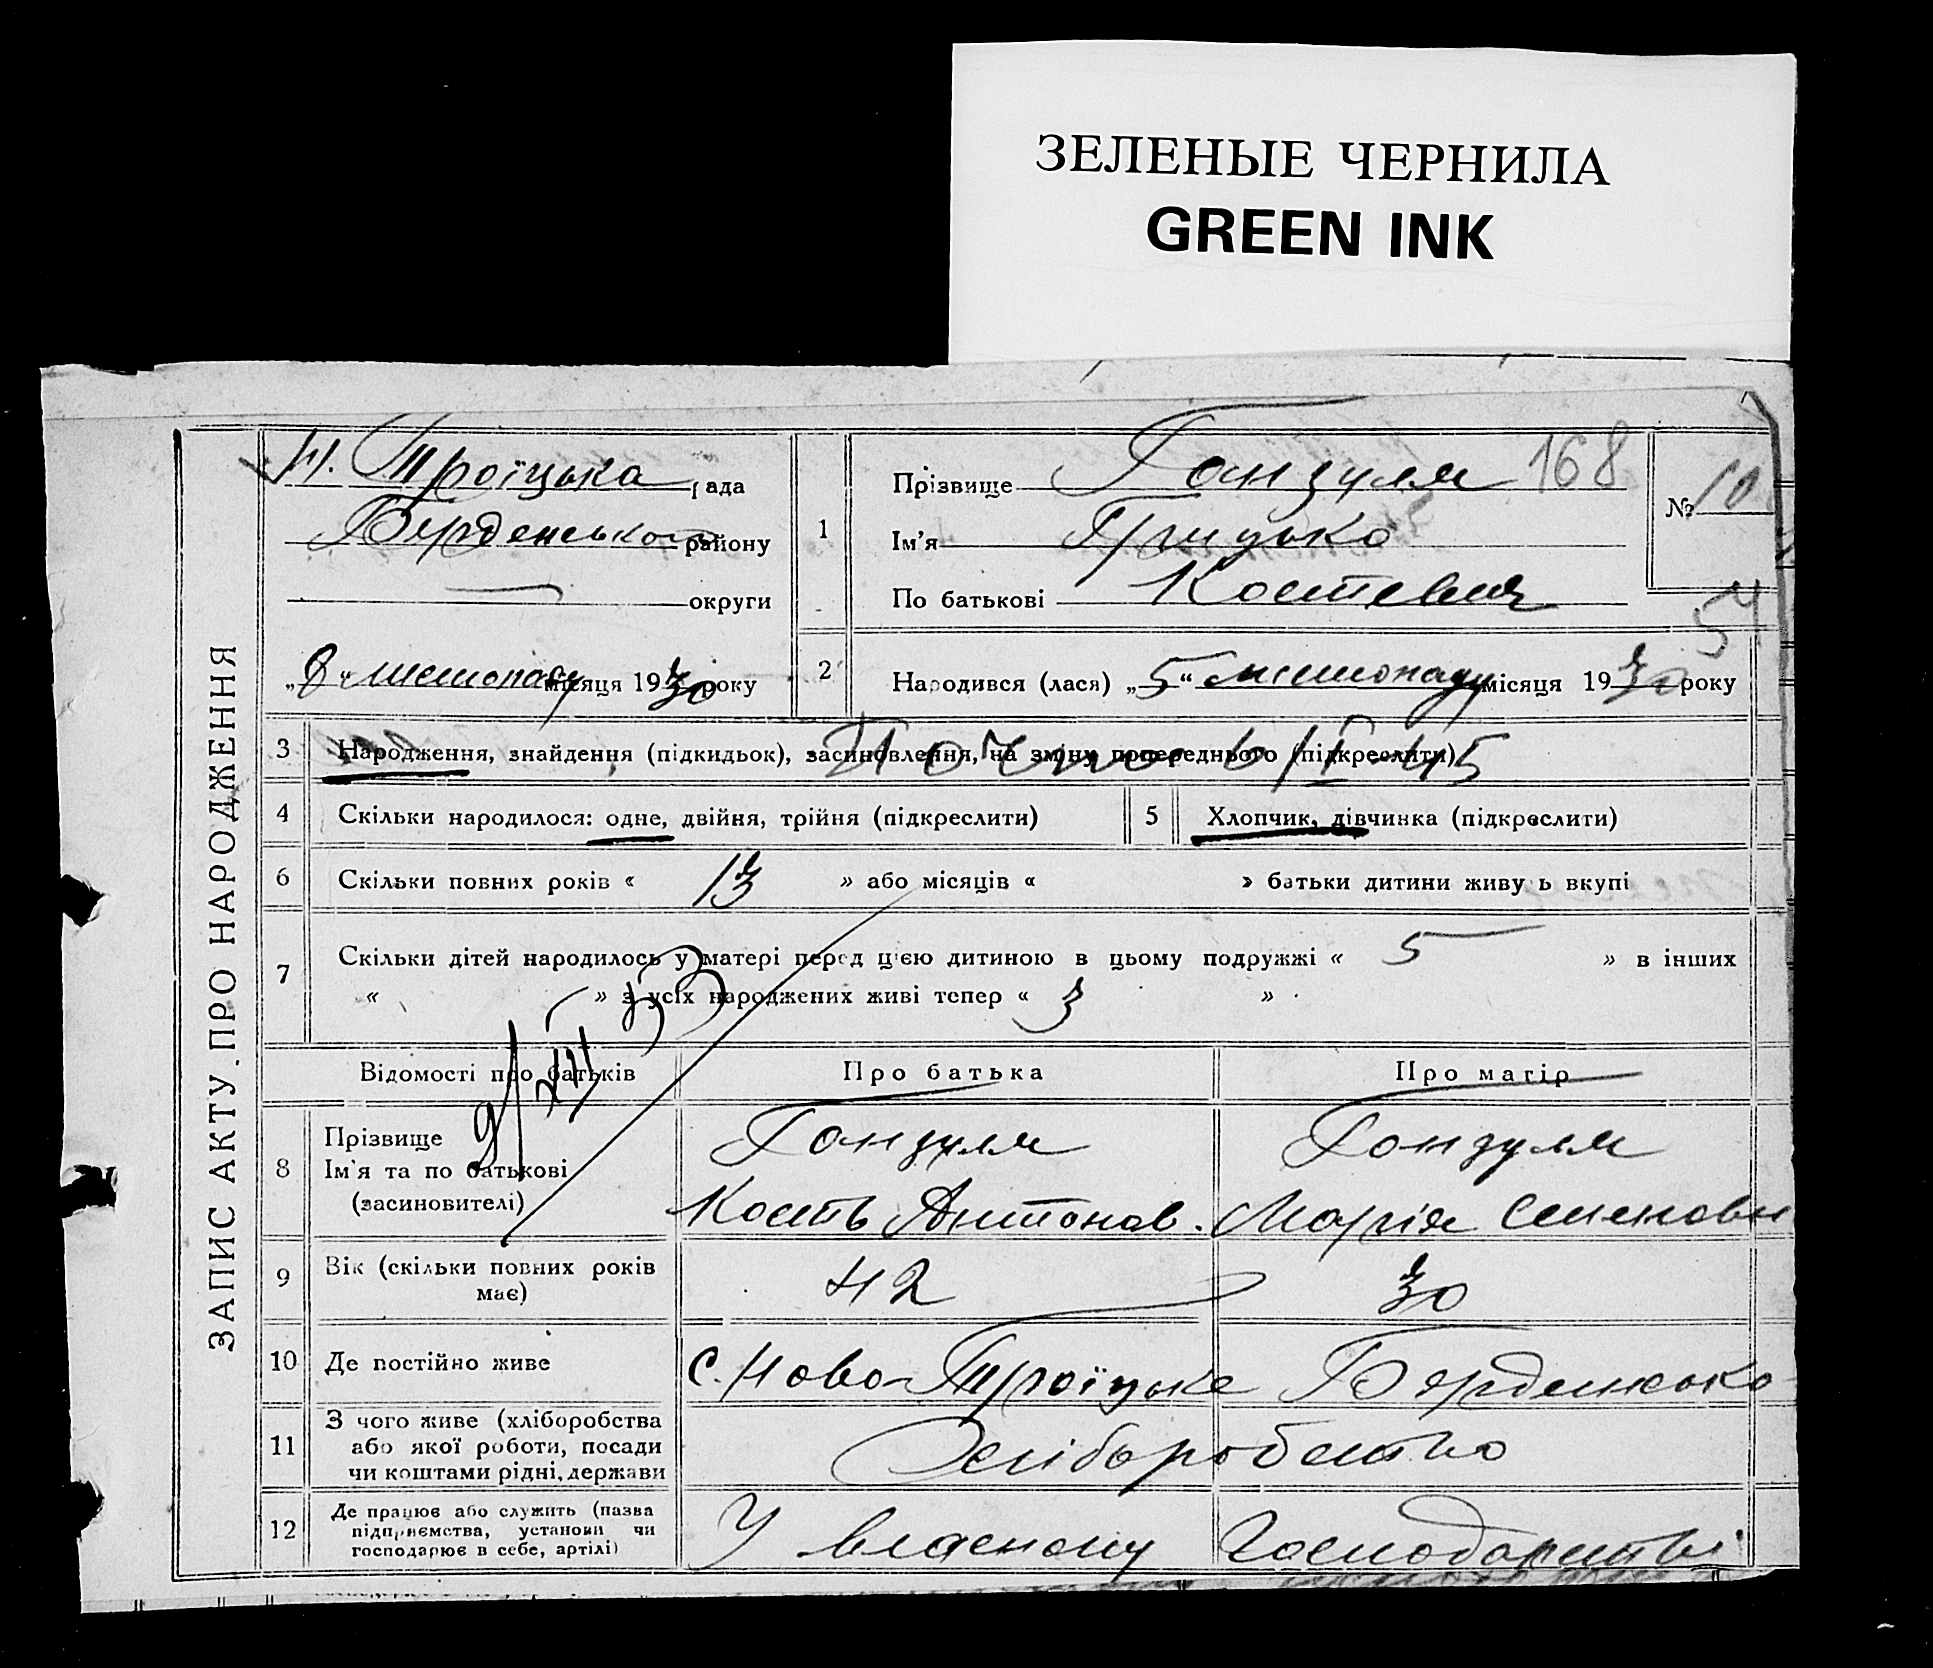 ЗЕЛЕНЫЕ ЧЕРНИЛА
GREEN INK
ЗАПИС АКТУ ПРО НАРОДЖЕННЯ
Н. Троїцька рада
Бердянського району
округи
„8“ листопаду місяця 1930 року
1
Прізвище Гонзуля 168
Ім'я Грицько
По батькові Костевич
№ 10
54
2
Народився (лася) „5“ листопаду місяця 1930 року
3 Народження, знайдення (підкидьок), засиновлення, на зміну попереднього (підкреслити)
4 Скільки народилося: одне, двійня, трійня (підкреслити)
5 Хлопчик, дівчинка (підкреслити)
6 Скільки повних років « 13 » або місяців « » батьки дитини живуть вкупі
7 Скільки дітей народилось у матері перед цією дитиною в цьому подружжі « 5 » в інших
« » з усіх народжених живі тепер « 3 »
Відомості про батьків Про батька Про матір
8 Прізвище
Ім'я та по батькові
(засиновителі)
Гонзуля
Кость Антонов.
Гонзуля
Марія Семеновн
9 Вік (скільки повних років
має)
42 30
10 Де постійно живе с. Ново-Троїцьке Бердянсько
11 З чого живе (хліборобства
або якої роботи, посади
чи коштами рідні, держави
Хліборобство
12 Де працює або служить (назва
підприємства, установи чи
господарює в себе, артілі)
У власному господарстві